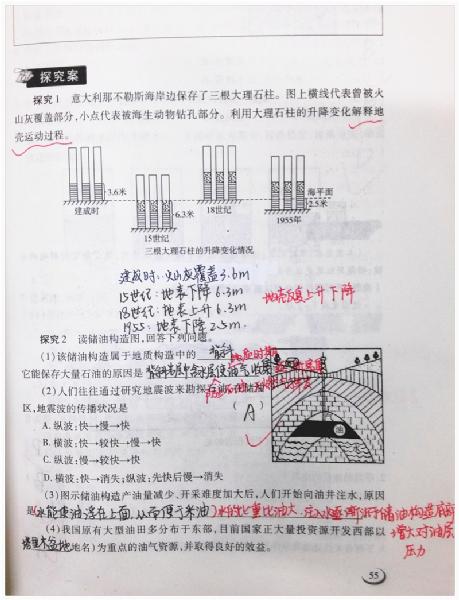 探究案
探究1 意大利那不勒斯海岸边保存了三根大理石柱。图上横线代表曾被火
山灰覆盖部分,小点代表被海生动物钻孔部分。利用大理石柱的升降变化解释地
壳运动过程。
3.6米
建成时
6.3米
15世纪
18世纪
海平面
2.5米
1955年
三根大理石柱的升降变化情况
建成时:火山灰覆盖3.6m
15世纪:地表下降6.3m
18世纪:地表上升6.3m
1955:地表下降2.5m.
地表反复上升下降
探究2 读储油构造图,回答下列问题。
(1)该储油构造属于地质构造中的 背斜
它能保存大量石油的原因是
(2)人们往往通过研究地震波来勘探
区,地震波的传播状况是
(A)
A. 纵波:快→慢→快
B. 横波:快→较快→慢→快
C. 纵波:慢→较快→快
D. 横波:快→消失;纵波:先快后慢→消失
油
(3)图示储油构造产油量减少、开采难度加大后,人们开始向油井注水,原因
是(水能使油浮在上面,从而便于采油) 水的比重比油大,
储油构造底部
增大对油层
压力
(4)我国原有大型油田多分布于东部,目前国家正大量投资源开发西部以
塔里木盆地(地名)为重点的油气资源,并取得良好的效益。
55